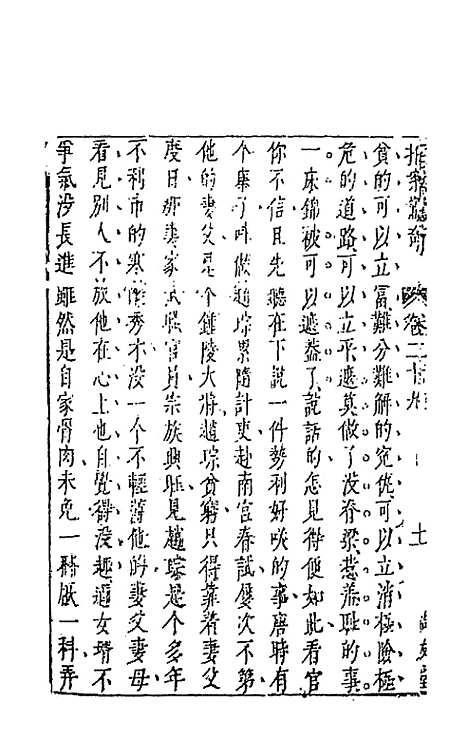 拍案驚奇 卷二十九 十
貧的可以立富難分難解的寃仇可以立消極險極
危的道路可以立平遮莫做了沒脊梁惹羞耻的事
一床錦被可以遮葢了說話的怎見得便如此看官
你不信且先聽在下說一件勢利好咲的事唐時有
个舉子呌做趙琮累隨計吏赴南宮春試屢次不第
他的妻父是个鍾陵大將趙琮貧窮只得靠着妻父
度日那妻家武職官員宗族興旺見趙琮是个多年
不利市的寒酸秀才沒一个不輕薄他的妻父妻母
看見別人不放他在心上也自覺得沒趣道女壻不
爭氣沒長進雖然是自家骨肉未免一科厭一科弄